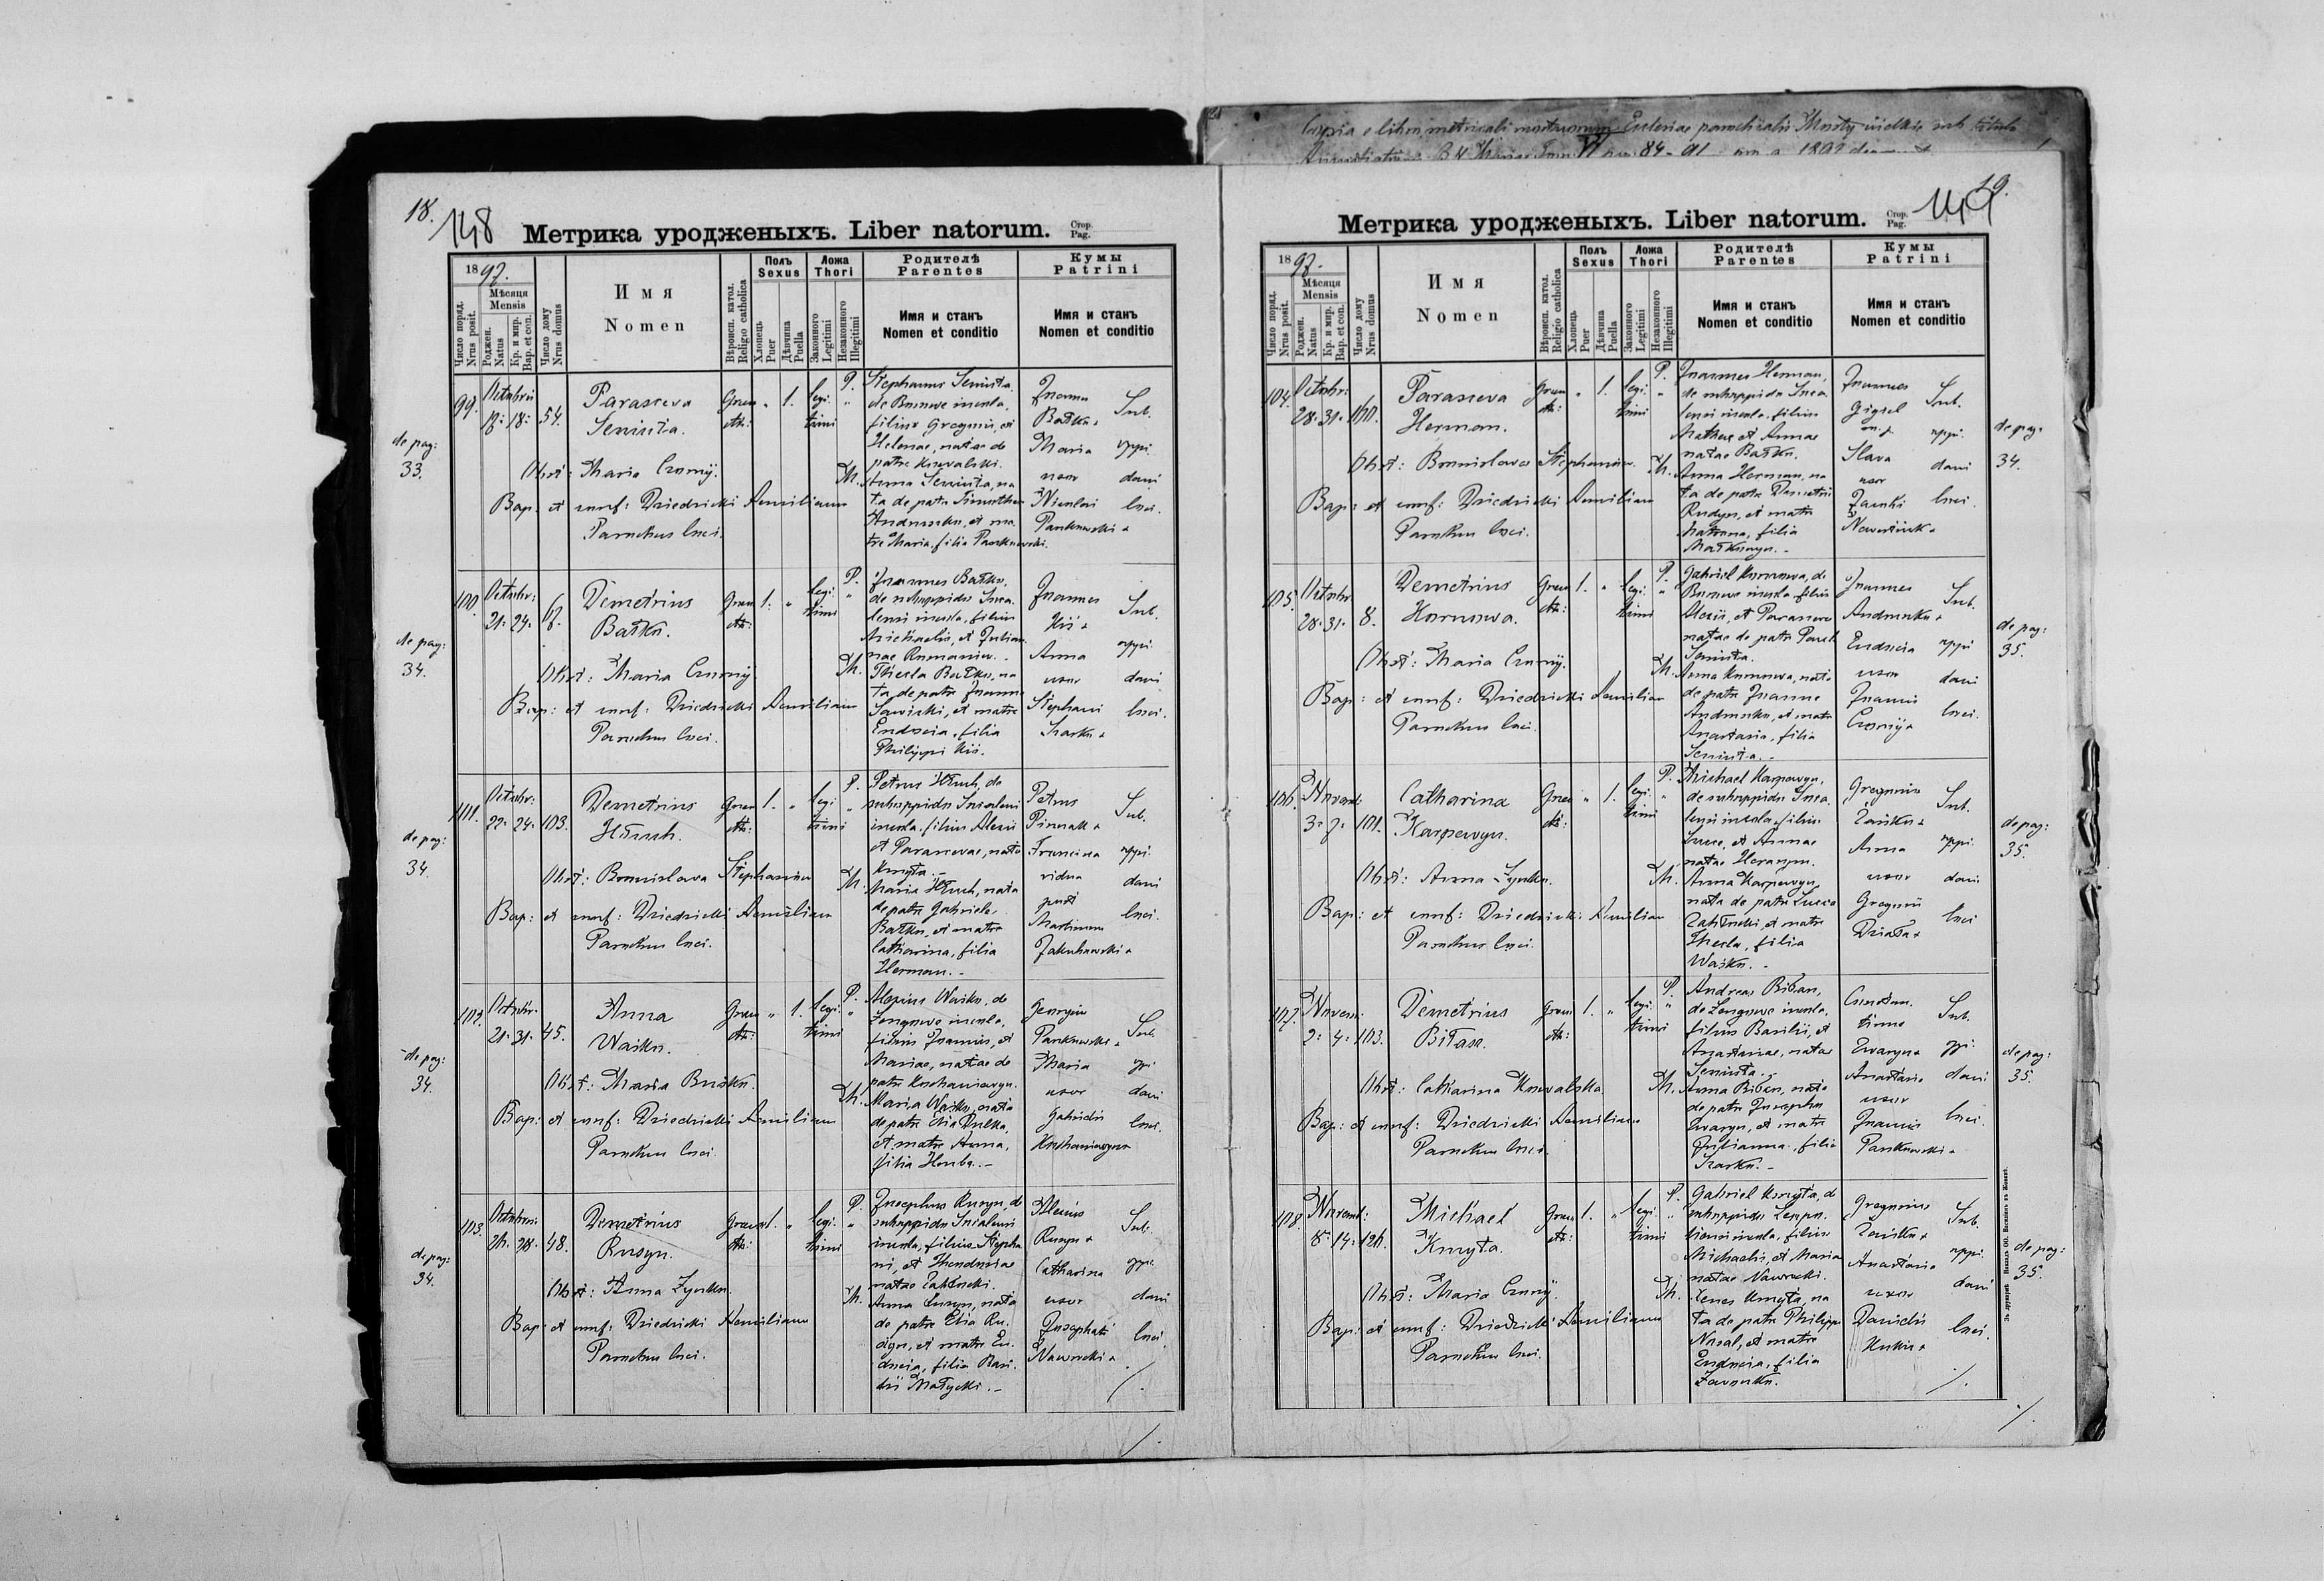 Copia e libro metricali mortuorum Ecclesiae parochialis Mosty wielkie sub titulo
B V Mariae Tom VI pag 84-91
18.
148
Метрика уродженыхъ. Liber natorum. Стор. Pag.
1897.
Число поряд. Nrus posit.
Мѣсяця Mensis
Роджен. Natus
Кр. и мир. Bap. et con.
Число дому Nrus domus
Имя
Nomen
Вѣроисп. катол. Religio catholica
Полъ Sexus
Хлопець Puer
Дѣвчина Puella
Ложа Thori
Законного Legitimi
Незаконного Illegitimi
Родителѣ Parentes
Имя и станъ
Nomen et conditio
Кумы Patrini
Имя и станъ
Nomen et conditio
de pag: 33.
99. Octobris 17. 18. 54.
Parasceva
Seniuta.
Graeco cath: " 1. legitimi "
Obst: Maria Czornij.
Bap. et conf: Dziedzicki Aemilianus
Parochus loci.
P. Stephanus Seniuta
de Borowe incola,
filius Gregorii, et
Helenae, natae de
patre Kowalski.
M. Anna Seniuta, na
ta de patre Timotheo
Andruszko, et ma
tre Maria, filia Pankowski.
Joannes
Batko +
Maria
uxor
Nicolai
Pankowski +
Sub
oppi
dani
loci.
de pag: 34.
100. Octobr: 21. 24. 67.
Demetrius
Batko.
Graeco cath: 1. " legitimi "
Obst: Maria Czornij
Bap: et conf: Dziedzicki Aemilianus
Parochus loci.
P. Joannes Batko,
de suboppido Inca
lensi incola, filius
Michaelis, et Julian
nae Romaniw.
M. Thecla Batko, na
ta de patre Joanne
Sawicki, et matre
Eudocia, filia
Philippi Kis.
Joannes
Kis +
Anna
uxor
Stephani
Iwasko +
Sub.
oppi
dani
loci.
de pag: 34.
101. Octobr: 22. 24. 103.
Demetrius
Graeco cath: 1. " legitimi "
Obst: Bronislava Stephaniw
Bap: et conf: Dziedzicki Aemilian
Parochus loci.
P. Petrus
suboppido
incola, filius Alexii
et Parascevae, nata
Kmyta.
M. Maria
de patre Gabriele
Batko, et matre
Catharina, filia
Herman.
Petrus
Francisca
vidua
post
Martinum
Jakubowski +
Sub.
oppi
dani
loci.
de pag: 34.
102. Octobr: 21. 31. 45.
Anna
Wasko.
Graeco cath: " 1. legitimi "
Obst: Maria Busko.
Bap: et conf: Dziedzicki Aemilianus
Parochus loci.
P. Alexius Wasko, de
Zengowe incola,
filius Joannis, et
Mariae, natae de
patre Kochaniwyn.
M. Maria Wasko, nata
de patre Elia Rulka,
et matre Anna,
filia
Georgius
Pankowski +
Maria
uxor
Gabrielis
Kochaniwyn +
Sub.
oppi
dani
loci.
de pag: 34.
103. Octobris 26. 28. 48.
Demetrius
Rusyn.
Graeco cath: 1. " legitimi "
Obst: Anna Zynko.
Bap: et conf: Dziedzicki Aemilianus
Parochus loci.
P. Josephus Rusyn, de
suboppido
incola, filius Stepha
ni, et Theodosiae
natae
M. Anna Rusyn, nata
de patre Elia Ru
dyn, et matre Eu
docia, filia Basi
lii Matycki.
Alexius
Rusyn +
Catharina
uxor
Josephati
Nawrocki +
Sub.
oppi
dani
loci.
19.
149
Метрика уродженыхъ. Liber natorum. Стор. Pag.
1897.
Число поряд. Nrus posit.
Мѣсяця Mensis
Роджен. Natus
Кр. и мир. Bap. et con.
Число дому Nrus domus
Имя
Nomen
Вѣроисп. катол. Religio catholica
Полъ Sexus
Хлопець Puer
Дѣвчина Puella
Ложа Thori
Законного Legitimi
Незаконного Illegitimi
Родителѣ Parentes
Имя и станъ
Nomen et conditio
Кумы Patrini
Имя и станъ
Nomen et conditio
104. Octobr: 28. 31. 160.
Parasceva
Herman.
Graeco cath: " 1. legitimi "
Obst: Bronislava Stephaniw.
Bap: et conf: Dziedzicki Aemilianus
Parochus loci.
P. Joannes Herman,
de suboppido Inca
lensi incola, filius
Mathaei et Annae
natae Batko.
M. Anna Herman, na
ta de patre Demetrio
Rudyn, et matre
Matrona, filia
Joannes
Slava
uxor
Sub.
oppi
dani
loci.
de pag. 34.
105. Octobr 28. 31. 8.
Demetrius
Graeco cath: 1. " legitimi "
Obst: Maria Czornij.
Bap: et conf: Dziedzicki Aemilian
Parochus loci.
P. Gabriel
Borowe incola, filius
Alexii, et Parascevae
natae de patre Paul
Seniuta.
M. Anna
de patre Joanne
Andruszko, et matre
Anastasia, filia
Seniuta.
Joannes
Andruszko +
Eudocia
uxor
Joannis
Czornij +
Sub.
oppi
dani
loci.
de pag: 35.
106. Novemb: 3. 7. 101.
Catharina
Karpewyn.
Graeco cath: " 1. legitimi "
Obst: Anna Zynko.
Bap: et conf: Dziedzicki Aemilian
Parochus loci.
P. Michael Karpewyn,
de suboppido Inca
lensi incola, filius
Lucae, et Annae
natae
M. Anna Karpewyn,
nata de patre Luca
et matre
Thecla, filia
Wasko.
Gregorius
Anna
uxor
Gregorii
Sub.
oppi
dani
loci
de pag: 35.
107. Novem: 2. 4. 103.
Demetrius
Graeco cath: 1. " legitimi "
Obst: Catharina Kowalska.
Bap: et conf: Dziedzicki Aemilian
Parochus loci.
P. Andreas
de Zengowe incola,
filius Basilii, et
Anastasiae, natae
Seniuta.
M. Anna
de patre Josepho
Iwaryn, et matre
Julianna, filia
Iwasko.
Constan
tinus
Iwaryn +
Anastasia
uxor
Joannis
Pankowski +
Sub.
oppi
dani
loci.
de pag: 35.
108. Novemb: 8. 14. 126.
Michael
Kmyta.
Graeco cath: 1. " legitimi "
Obst: Maria Czornij.
Bap: et conf: Dziedzicki Aemilianus
Parochus loci.
P. Gabriel Kmyta, de
suboppido
incola, filius
Michaelis, et Maria
natae Nawrocki.
M. Xenia Kmyta, na
ta de patre Philippo
Nosal, et matre
Eudocia, filia
Gregorius
Anastasia
uxor
Danielis
Sub.
oppi
dani
loci.
de pag: 35.